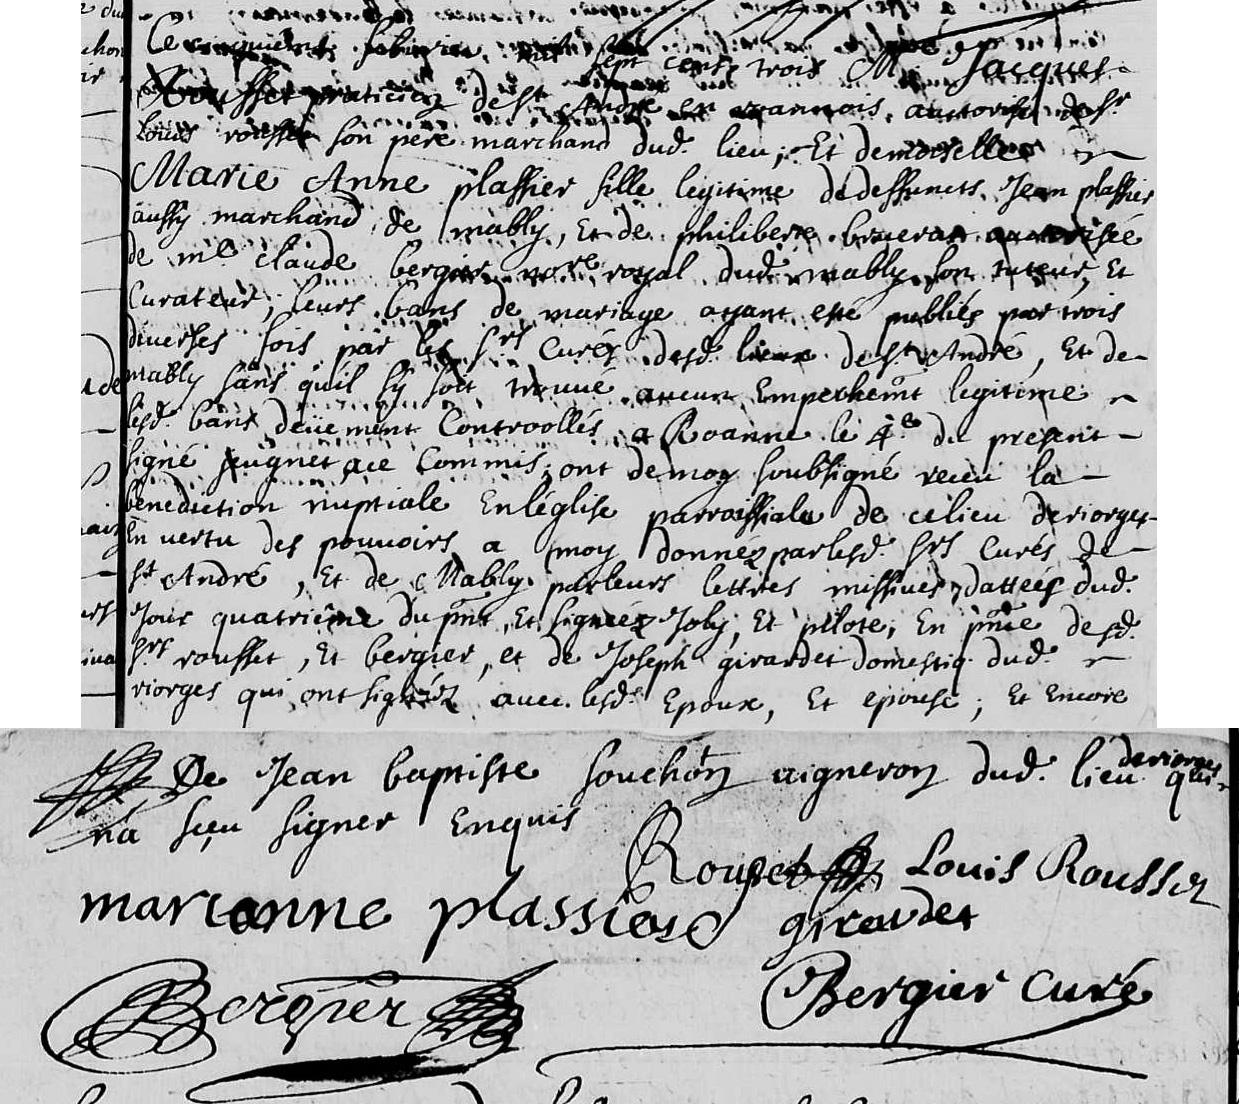 Ce cinquieme febvrier mil sept cents trois Mre Jacques
Rousset praticien de St André en roannois, authorisé de Sr
Louis rousset son pere marchand dud. lieu; Et demoiselle
Marie Anne plassier fille legitime de deffuncts Jean plassier
aussy marchand de mably, Et de philiberte authorisée
de me Claude bergier nore royal dud. mably son tuteur, Et
Curateur; leurs bans de mariage ayant esté publiés par trois
diverses fois par les srs Curés desd. lieux de St André, Et de
mably sans quil sy soit trouvé aucun Empechemt legitime
lesd. bans deuement Controollés a Roanne le 4e du present
signé commis; ont de moy soubsigné receu la
benediction nuptiale En léglise parroissiale de celieu deriorges
En vertu des pouvoirs a moy donnéz parlesd. srs Curés de
St André, Et de Mably parleurs lettres missives dattees dud.
Jour quatriéme du pnt, Et signéez Joly, Et pilote; En pnce desd.
srs rousset, Et bergier, et de Joseph girardet domestiq. dud.
riorges qui ont signéz avec lesd. Epoux, Et epouse; Et Encore
De Jean baptiste souchon vigneron dud. lieu deriorges qui
na sçeu signer Enquis
Rousset Louis Rousset
marianne plassiere girardet
Bergier Bergier Curé